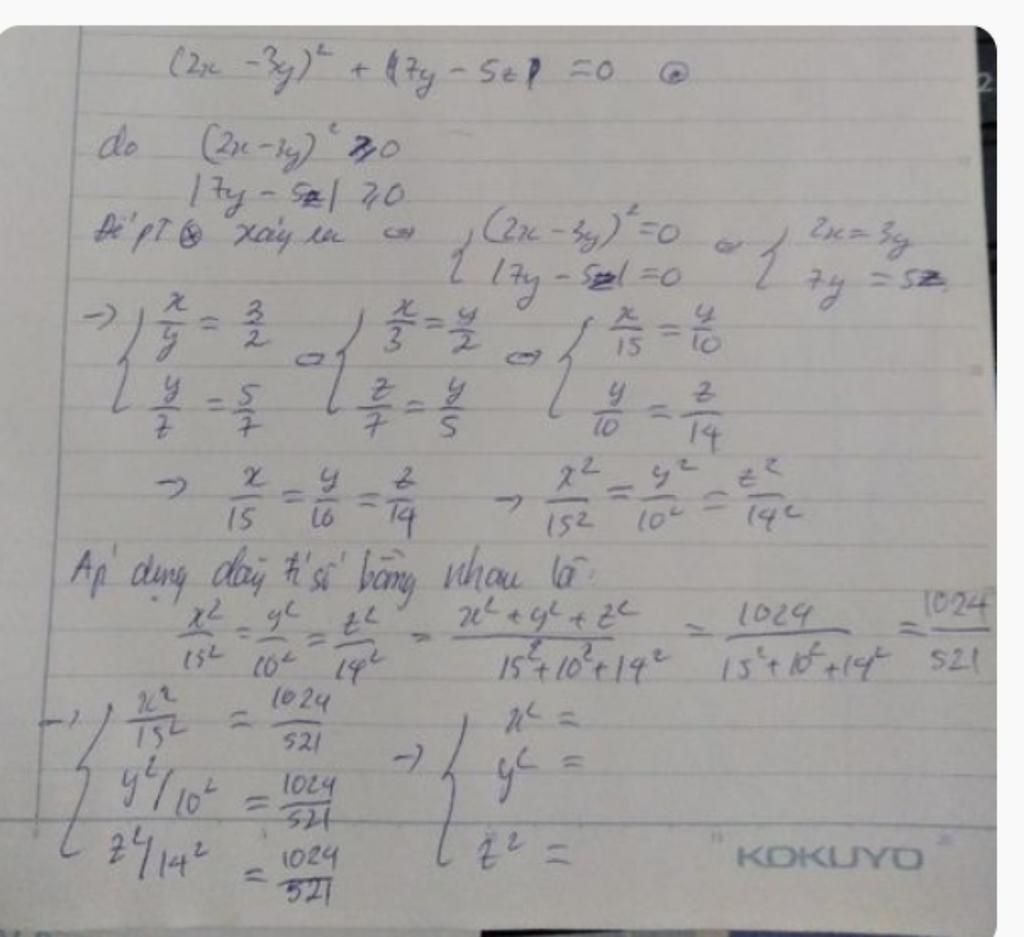 (2x - 3y)² + |7y - 5z| = 0 ⊛
do (2x-3y)² ⩾ 0
|7y - 5z| ⩾ 0
Để pT ⊛ xảy ra ⇔ { (2x - 3y)² = 0 ⇔ { 2x = 3y
|7y - 5z| = 0 7y = 5z
→ { x/y = 3/2 ⇔ { x/3 = y/2 ⇔ { x/15 = y/10
y/z = 5/7 z/7 = y/5 y/10 = z/14
→ x/15 = y/10 = z/14 → x²/15² = y²/10² = z²/14²
Áp dụng dãy tỉ số bằng nhau là:
x²/15² = y²/10² = z²/14² = x² + y² + z²/15² + 10² + 14² = 1024/15² + 10² + 14² = 1024/521
→ { x²/15² = 1024/521 → { x² =
y²/10² = 1024/521 y² =
z²/14² = 1024/521 z² =
KOKUYO